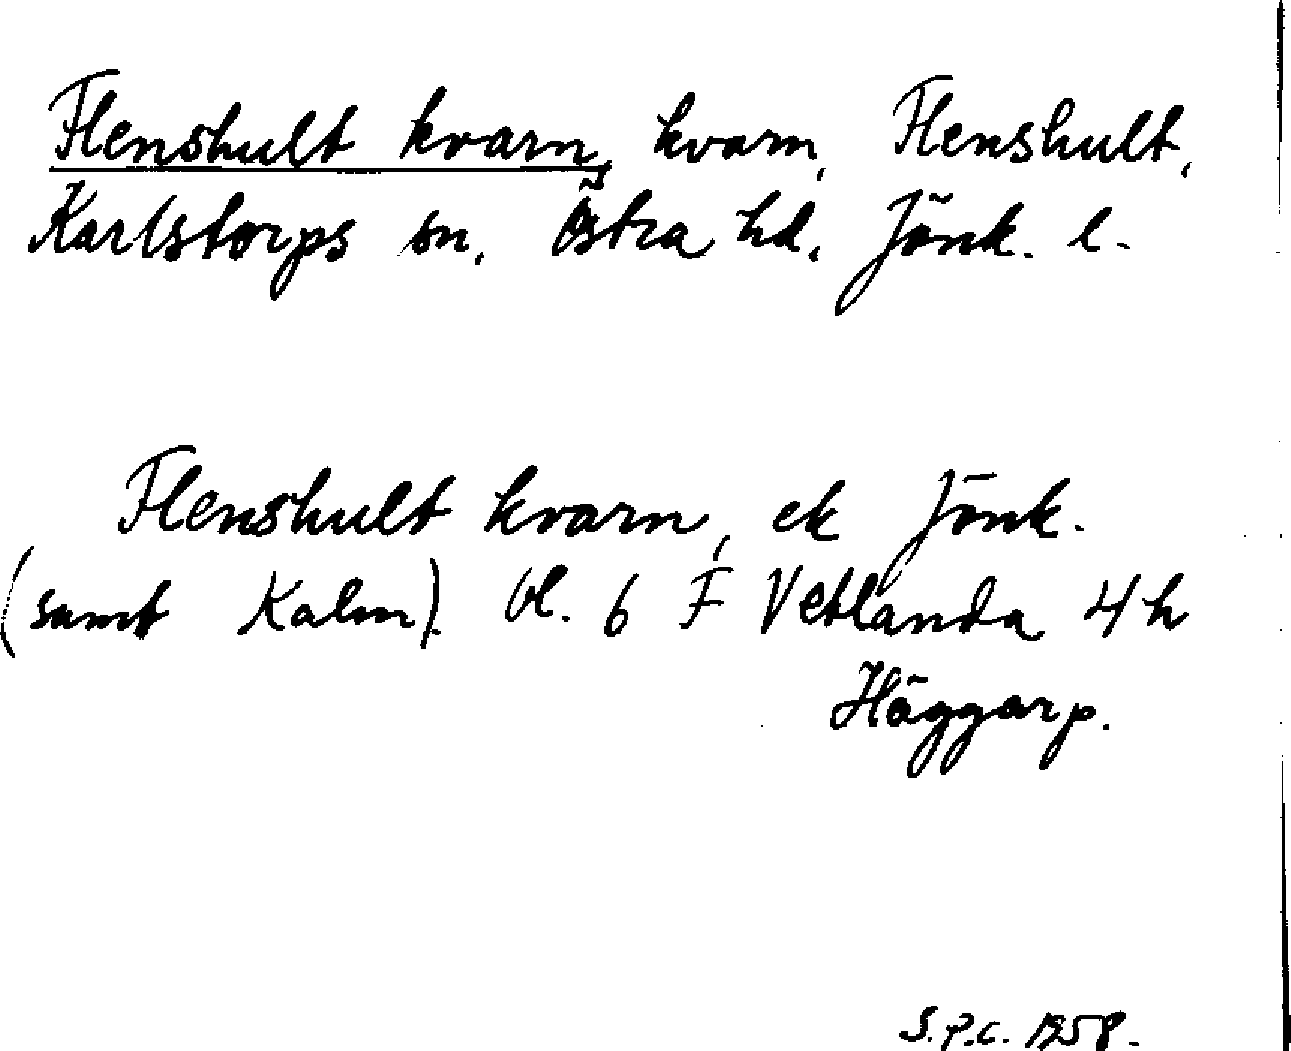 Flenshult kvarn, kvarn, Flenshult,
Karlstorps sn. Östra hd. Jönk. l.
Flenshult kvarn, ek Jönk.
(samt Kalm). bl. 6 F Vetlanda 4h
Häggarp.
S.P.C. 1958.